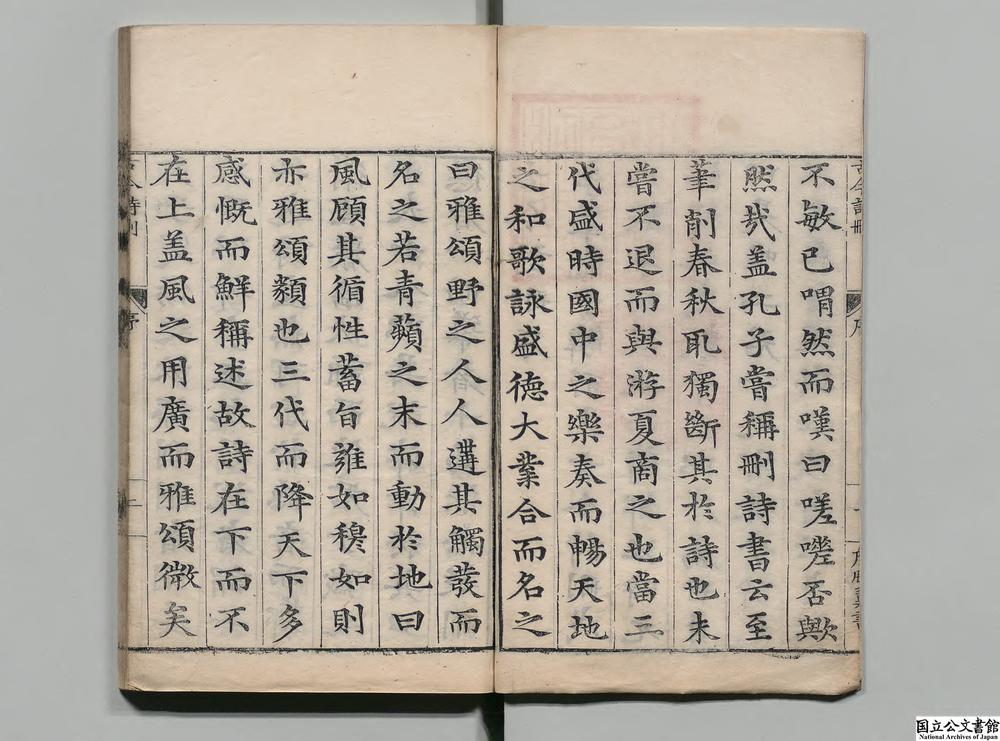 不敏已喟然而嘆曰嗟嗟否歟
然㢤盖孔子嘗稱刪詩書云至
筆削春秋耴獨斷其於詩也未
嘗不退而與游夏商之也當三
代盛時國中之樂奏而暢天地
之和歌詠盛德大業合而名之
曰雅頌野之人人遘其觸發而
名之若青蘋之末而動於地曰
風顧其循性蓄旨雝如穆如則
亦雅頌類也三代而降天下多
感慨而鮮稱述故詩在下而不
在上盖風之用廣而雅頌微矣
古今詩刪
序
一
序
二
国立公文書館
National Archives of Japan